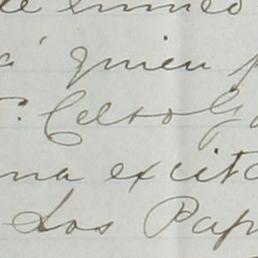 á quien
Celso G
na excita
Los Pap